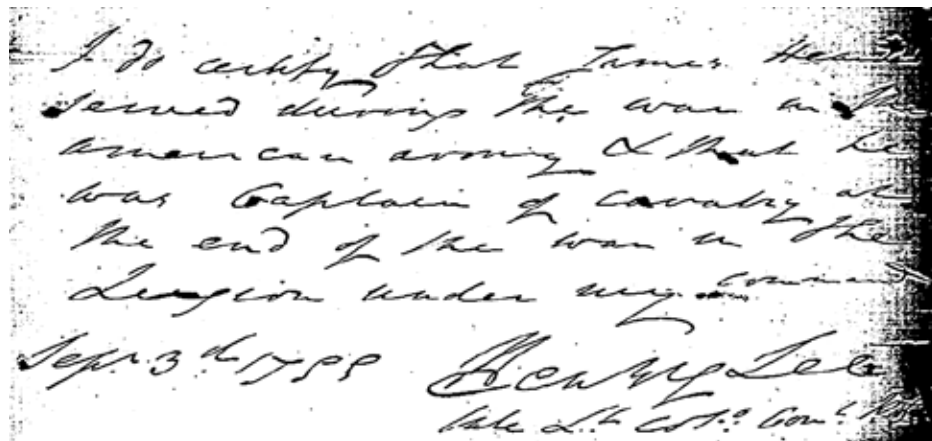 I do certify that James Heard
served during the war in the
american army & that he
was Captain of cavalry at
the end of the war in the
Legion under my command
Sepr. 3d 1788
Henry Lee
late Lt. Colo. Comt.